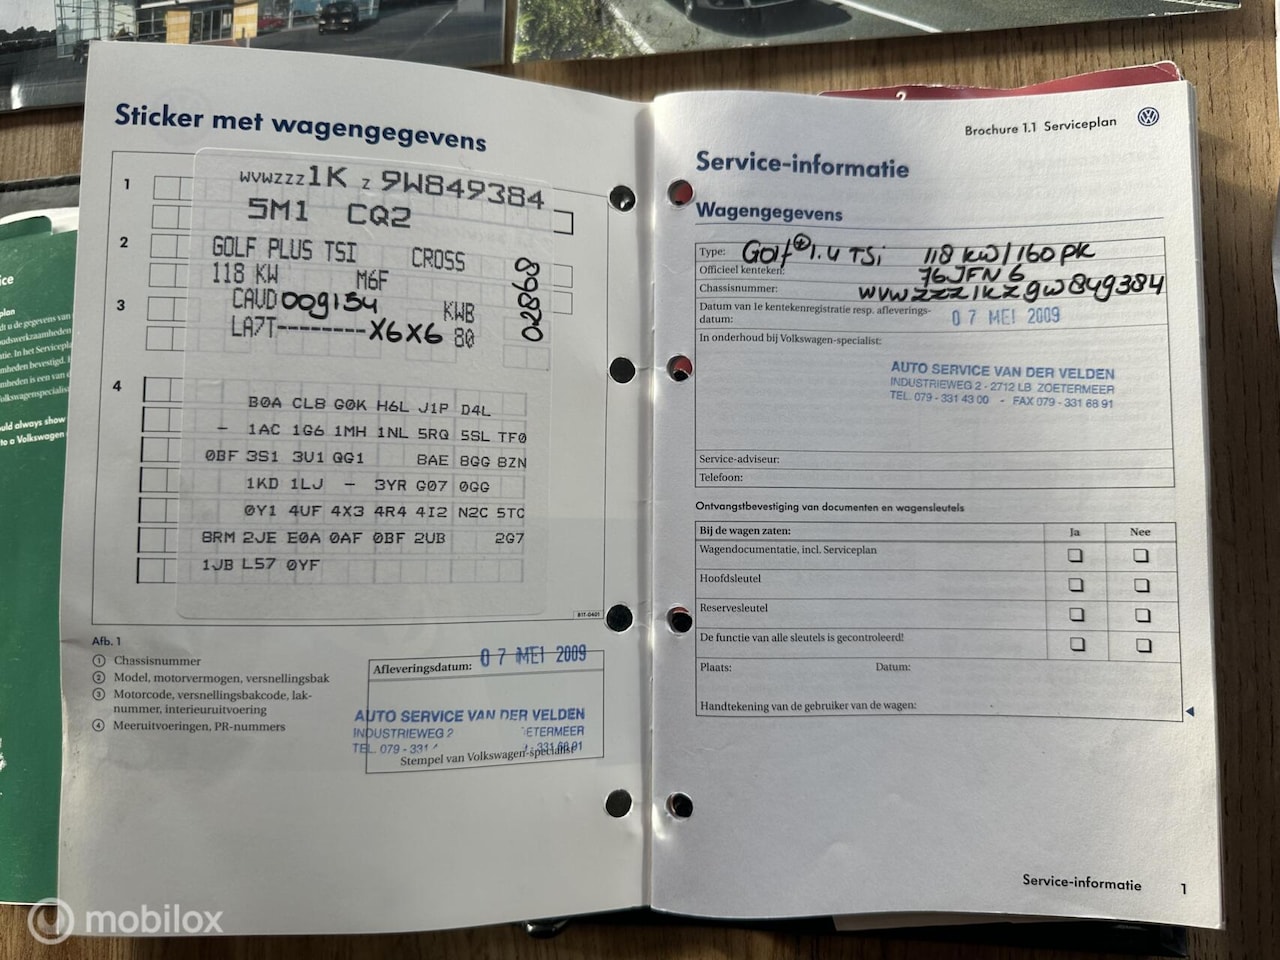 Sticker met wagengegevens
1
WVWZZZ1K Z 9W849384
5M1 CQ2
2
GOLF PLUS TSI CROSS
118 KW M6F
3
CAVD 009154 KWB
LA7T--------X6X6 80
02898
4
B0A CL8 G0K H6L J1P D4L
- 1AC 1G6 1MH 1NL 5RQ 5SL TF0
0BF 3S1 3U1 QG1 8AE 8GG 8ZN
1KD 1LJ - 3YR G07 0GG
0Y1 4UF 4X3 4R4 4I2 N2C 5TC
8RM 2JE E0A 0AF 0BF 2UB 2G7
1JB L57 0YF
B1T-0401
Afb. 1
① Chassisnummer
② Model, motorvermogen, versnellingsbak
③ Motorcode, versnellingsbakcode, lak-
nummer, interieuruitvoering
④ Meeruitvoeringen, PR-nummers
Afleveringsdatum: 07 MEI 2009
AUTO SERVICE VAN DER VELDEN
INDUSTRIEWEG 2 ETERMEER
TEL. 079 - 331 331 68 91
Stempel van Volkswagen-specialist
Brochure 1.1 Serviceplan
Service-informatie
Wagengegevens
Type: Golf + 1.4 TSi 118 kW/160 pk
Officieel kenteken: 76JFN6
Chassisnummer: WVWZZZ1KZ9W849384
Datum van 1e kentekenregistratie resp. afleverings-
datum: 07 MEI 2009
In onderhoud bij Volkswagen-specialist:
AUTO SERVICE VAN DER VELDEN
INDUSTRIEWEG 2 - 2712 LB ZOETERMEER
TEL. 079 - 331 43 00 - FAX 079 - 331 68 91
Service-adviseur:
Telefoon:
Ontvangstbevestiging van documenten en wagensleutels
Bij de wagen zaten: Ja Nee
Wagendocumentatie, incl. Serviceplan
Hoofdsleutel
Reservesleutel
De functie van alle sleutels is gecontroleerd!
Plaats: Datum:
Handtekening van de gebruiker van de wagen:
Service-informatie 1
mobilox